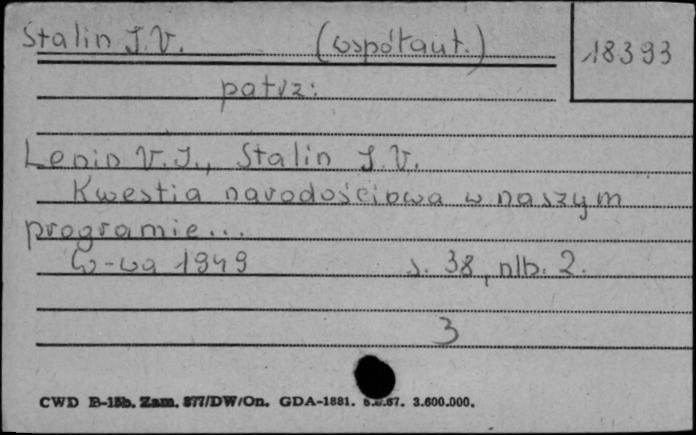 Stalin J.V. (współaut.) 18393
patrz:
Lenin V.I., Stalin J.V.
Kwestia narodościowa w naszym
programie...
W-wa 1949 s. 38, nlb. 2.
3
CWD B-15b. Zam. 877/DW/On. GDA-1881. 67. 3.600.000.